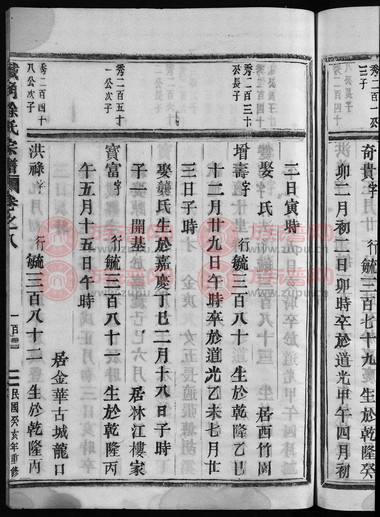 奇貴字 行毓三百七十九 生於乾隆
卯二月初二日卯時卒於道光甲午四月初
三日寅時
秀二百三十
公長子
娶 氏 居西竹園
增壽字 行毓三百八十 生於乾隆乙巳
十二月廿九日午時卒於道光乙未七月廿
三日子時
娶龔氏生於嘉慶丁巳二月十八日子時
子一 開基 居林江樓家
秀二百五十
一公次子
寶富字 行毓三百八十一 生於乾隆丙
午五月十五日午時
居金華古城龍口
秀二百四十
八公次子
洪祿字 行毓三百八十二 生於乾隆丙
徐氏宗譜 卷之八 民國癸亥年重修